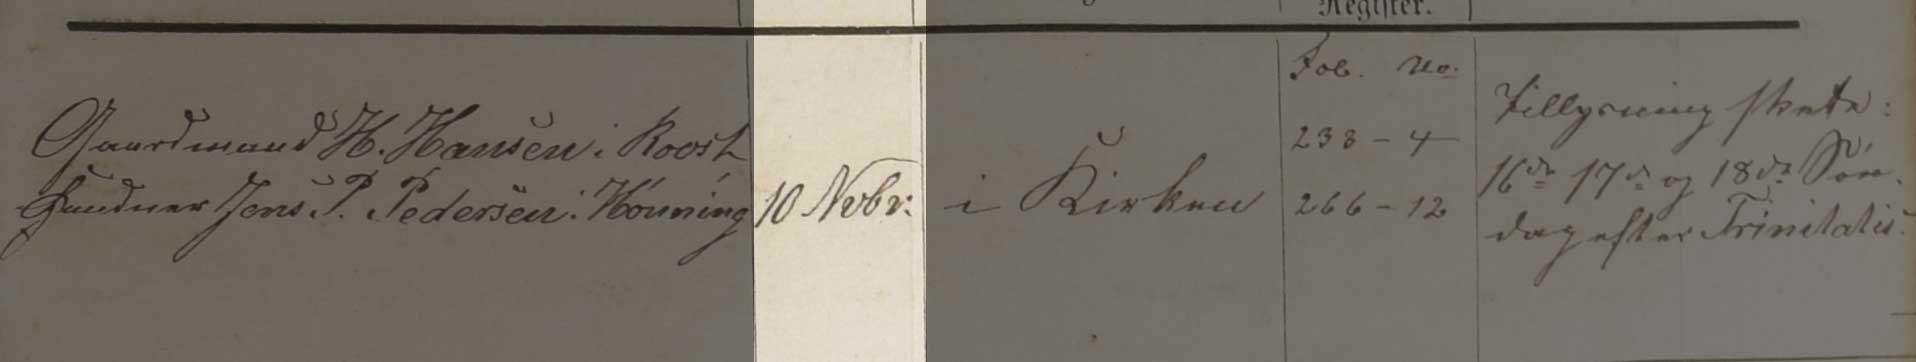 Register.
Fol. No.
Gaardmand H. Hansen i Roost
Jens P. Pedersen i Hönning
10 Nvbr.
i Kirken
238 - 4
266 - 12
Tillysning skete:
16de 17de og 18de Søn-
dag efter Trinitatis.